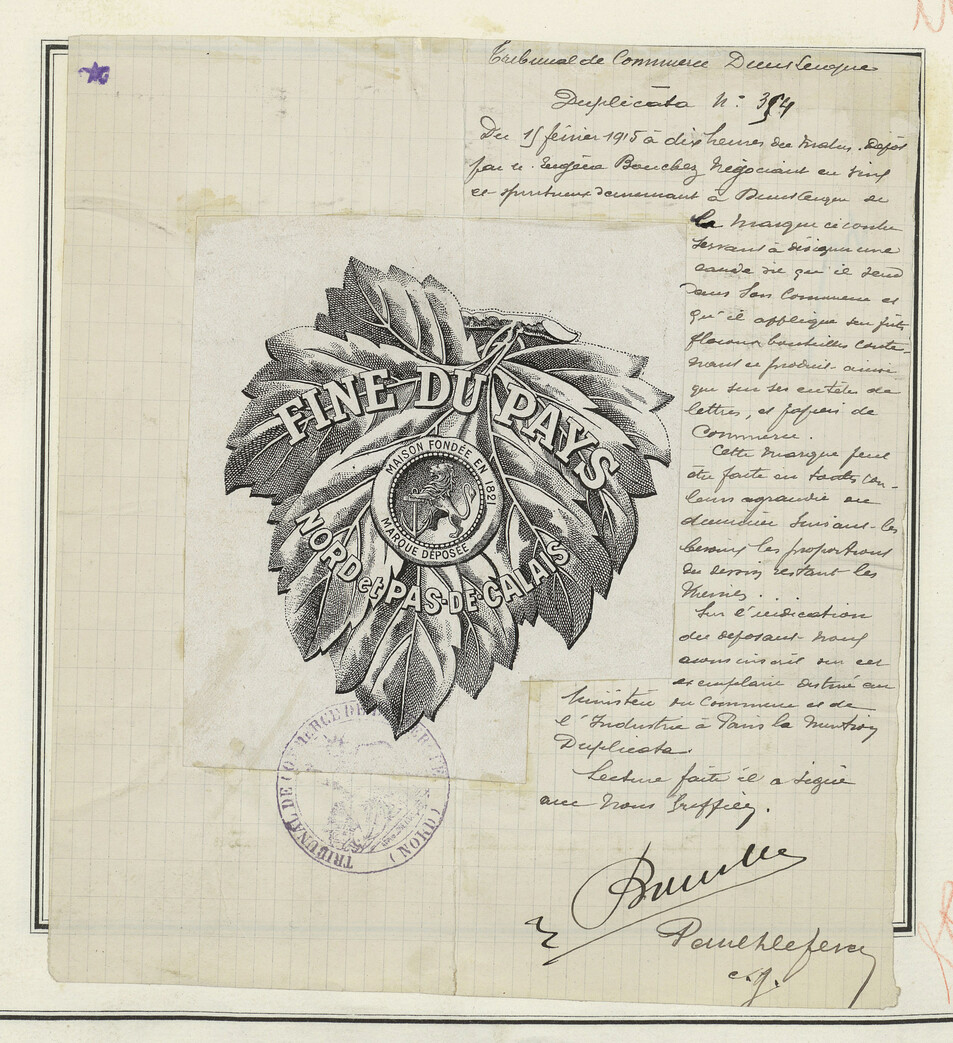 Tribunal de Commerce Dunkerque
Duplicata N:
Du 15 février 1915 à dix heures du matin. Dépôt
par M. Eugène Bouchez Négociant en vins
et spiritueux demeurant à Dunkerque de
la marque ci contre
servant à désigner une
eau de vie qu'il vend
dans son commerce et
qu'il applique sur fûts
flacons bouteilles conte-
nant ce produit ainsi
que sur ses entêtes de
lettres, et papiers de
Commerce.
Cette marque peut
être faite en toutes cou-
leurs agrandie ou
diminuée suivant les
besoins les proportions
du dessin restant les
mêmes . . .
Sur l'indication
du déposant nous
avons inscrit sur cet
exemplaire destiné au
Ministère du Commerce et de
l'Industrie à Paris la mention
Duplicata.
Lecture faite il a signé
avec nous Greffier.
FINE DU PAYS
MAISON FONDÉE EN 1821
MARQUE DÉPOSÉE
NORD et PAS-DE-CALAIS
TRIBUNAL DE COMMERCE DE DUNKERQUE (NORD)
c.g.